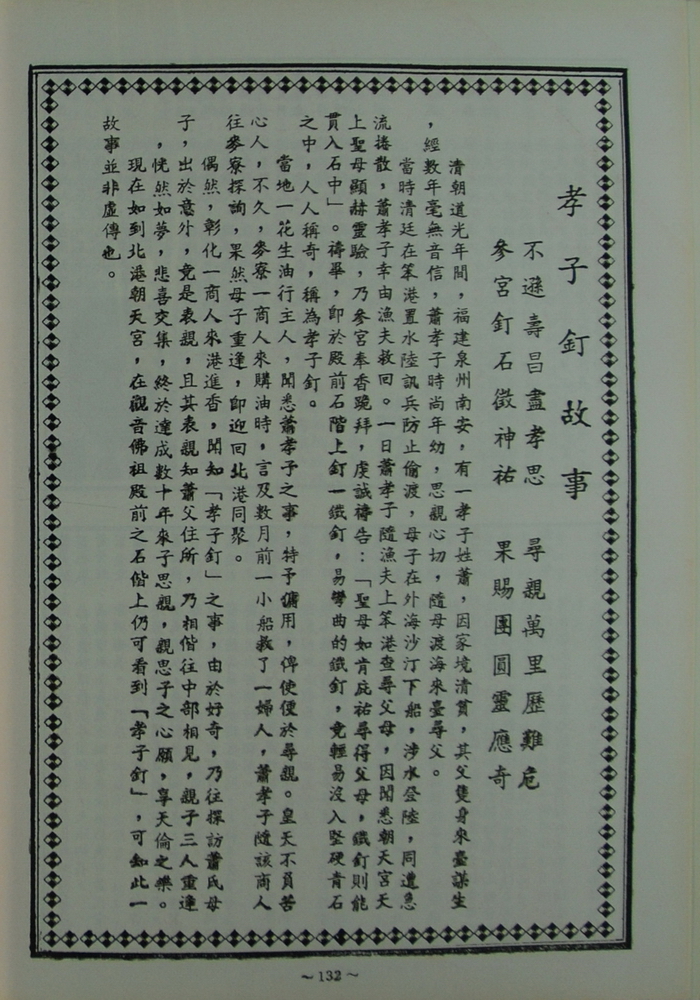 孝子釘故事
不遜壽昌盡孝思　尋親萬里歷難危
參宮釘石徵神祐　果賜團圓靈應奇
清朝道光年間，福建泉州南安，有一孝子姓蕭，因家境清貧，其父隻身來臺謀生
，經數年毫無音信，蕭孝子時尚年幼，思親心切，隨母渡海來臺尋父。
當時清廷在笨港置水陸訊兵防止偷渡，母子在外海沙汀下船，涉水登陸，同遭急
流捲散，蕭孝子幸由漁夫救回。一日蕭孝子隨漁夫上笨港查尋父母，因聞悉朝天宮天
上聖母顯赫靈驗，乃參宮奉香跪拜，虔誠禱告：「聖母如肯庇祐尋得父母，鐵釘則能
貫入石中」。禱畢，卽於殿前石階上釘一鐵釘，易彎曲的鐵釘，竟輕易沒入堅硬青石
之中，人人稱奇，稱為孝子釘。
當地一花生油行主人，聞悉蕭孝子之事，特予傭用，俾使便於尋親。皇天不負苦
心人，不久，麥寮一商人來購油時，言及數月前一小船救了一婦人，蕭孝子隨該商人
往麥寮探詢，果然母子重逢，卽迎回北港同聚。
偶然，彰化一商人來港進香，聞知「孝子釘」之事，由於好奇，乃往探訪蕭氏母
子，出於意外，竟是表親，且其表親知蕭父住所，乃相偕往中部相見，親子三人重逢
，恍然如夢，悲喜交集，終於達成數十年來子思親，親思子之心願，享天倫之樂。
現在如到北港朝天宮，在觀音佛祖殿前之石偕上仍可看到「孝子釘」，可知此一
故事並非虛傳也。
～132～